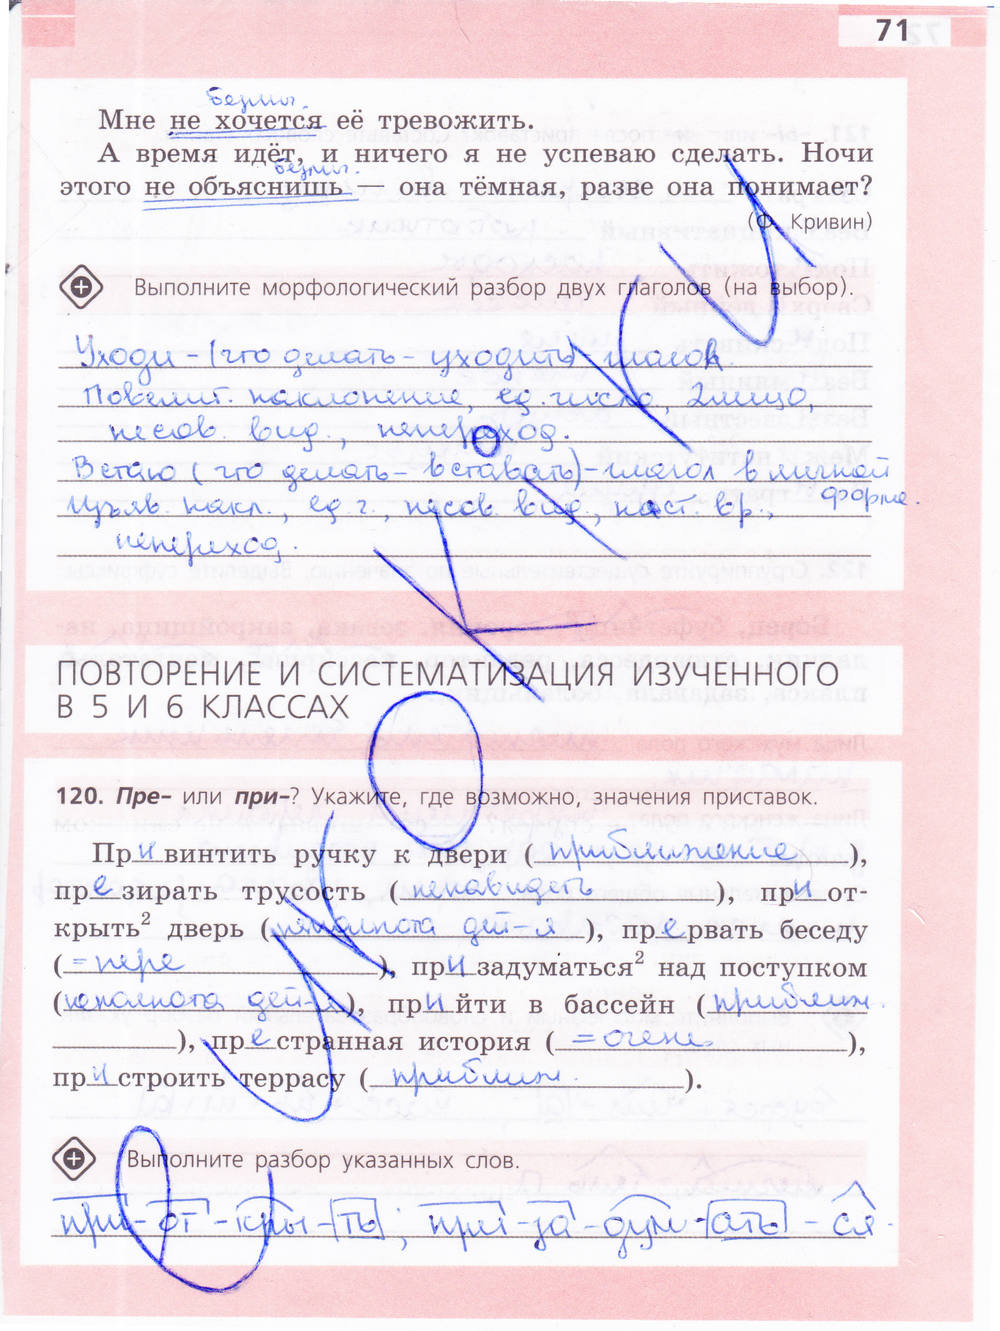 71
безлич.
Мне не хочется её тревожить.
А время идёт, и ничего я не успеваю сделать. Ночи
безлич.
этого не объяснишь — она тёмная, разве она понимает?
(Ф. Кривин)
Выполните морфологический разбор двух глаголов (на выбор).
Уходи - (что делать - уходить) - глагол.
Повелит. наклонение, ед. число, 2 лицо,
несов. вид., непереход.
Встаю (что делать - вставать) - глагол в личной
форме.
Изъяв. накл., ед. ч., несов. вид., наст. вр.,
непереход.
ПОВТОРЕНИЕ И СИСТЕМАТИЗАЦИЯ ИЗУЧЕННОГО
В 5 И 6 КЛАССАХ
120. Пре– или при–? Укажите, где возможно, значения приставок.
Привинтить ручку к двери (приближение),
презирать трусость (ненавидеть), приот-
крыть² дверь (неполнота дей-я), прервать беседу
(=пере), призадуматься² над поступком
(неполнота дей-я), прийти в бассейн (приближ.
), престранная история (=очень),
пристроить террасу (приближ.).
Выполните разбор указанных слов.
при-от-кры-ть; при-за-дум-ать-ся.